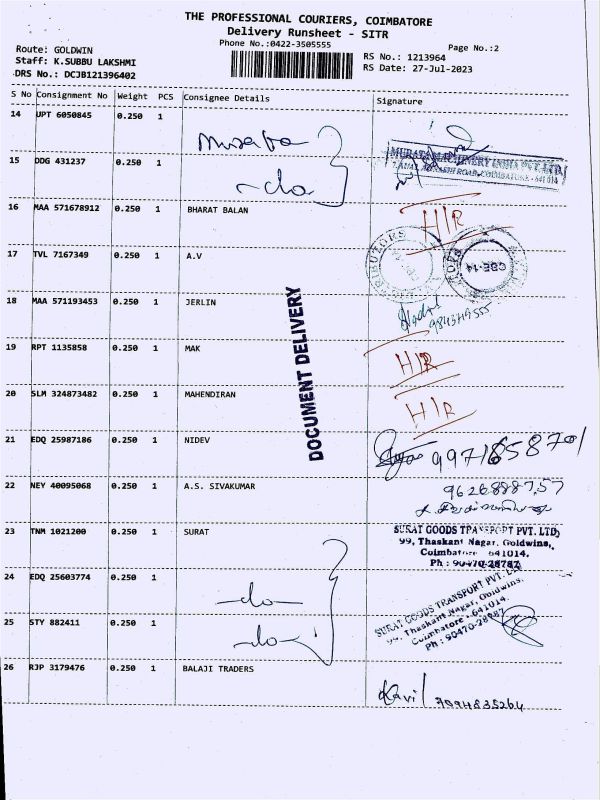 THE PROFESSIONAL COURIERS, COIMBATORE
Delivery Runsheet - SITR
Phone No.:0422-3505555
Page No.:2
Route: GOLDWIN
Staff: K.SUBBU LAKSHMI
DRS No.: DCJB121396402
RS No.: 1213964
RS Date: 27-Jul-2023
S No Consignment No Weight PCS Consignee Details Signature
14 UPT 6050845 0.250 1
15 DDG 431237 0.250 1 -do-
MURATA MACHINERY INDIA PVT. LTD
16 MAA 571678912 0.250 1 BHARAT BALAN H/R
17 TVL 7167349 0.250 1 A.V
CBE-14
18 MAA 571193453 0.250 1 JERLIN
DOCUMENT DELIVERY
19 RPT 1135858 0.250 1 MAK H/R
20 SLM 324873482 0.250 1 MAHENDIRAN H/R
21 EDQ 25987186 0.250 1 NIDEV
22 NEY 40095068 0.250 1 A.S. SIVAKUMAR
23 TNM 1021200 0.250 1 SURAT
SURAT GOODS TRANSPORT PVT. LTD,
99, Thaskant Nagar, Goldwins,
Coimbatore - 641014.
Ph : 90470-28787
24 EDQ 25603774 0.250 1 -do-
25 STY 882411 0.250 1 -do-
SURAT GOODS TRANSPORT PVT. LTD,
99, Thaskant Nagar, Goldwins,
Coimbatore - 641014.
Ph : 90470-28787
26 RJP 3179476 0.250 1 BALAJI TRADERS